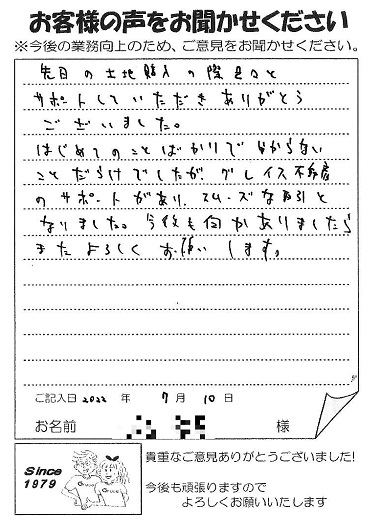 お客様の声をお聞かせください
※今後の業務向上のため、ご意見をお聞かせください。
先日の土地購入の際色々と
サポートしていただきありがとう
ございました。
はじめてのことばかりで分からない
ことだらけでしたが、グレイス不動産
のサポートがあり、スムーズな取引と
なりました。今後も何かありましたら
またよろしくお願いします。
ご記入日 2022 年 7月 10日
お名前 様
Since
1979
貴重なご意見ありがとうございました!
今後も頑張りますので
よろしくお願いいたします